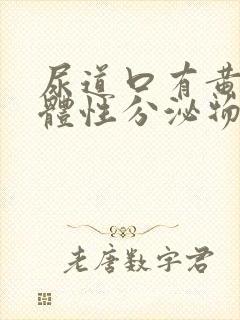 尿道口有黄
體性分泌物
老唐数字君